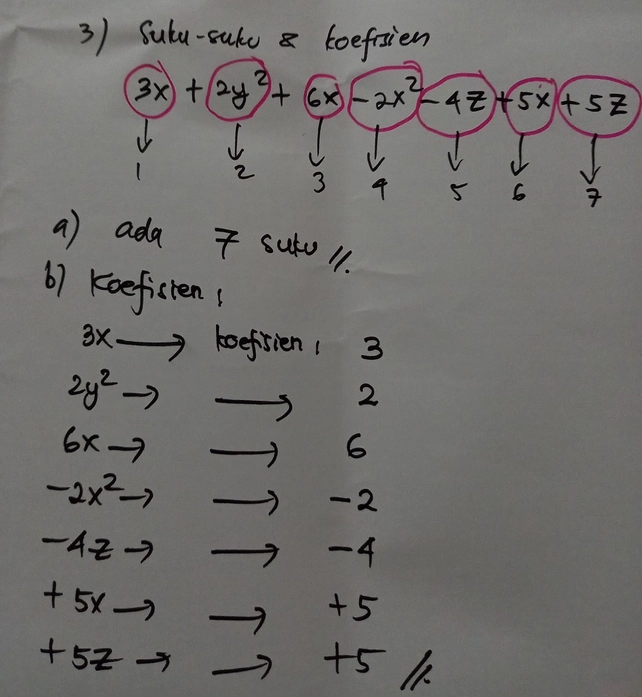 3) Suku-suku & koefisien
3x + 2y² + 6x - 2x² - 4z + 5x + 5z
1 2 3 4 5 6 7
a) ada 7 suku //.
b) Koefisien :
3x → koefisien : 3
2y² → → 2
6x → → 6
-2x² → → -2
-4z → → -4
+5x → → +5
+5z → → +5 //.